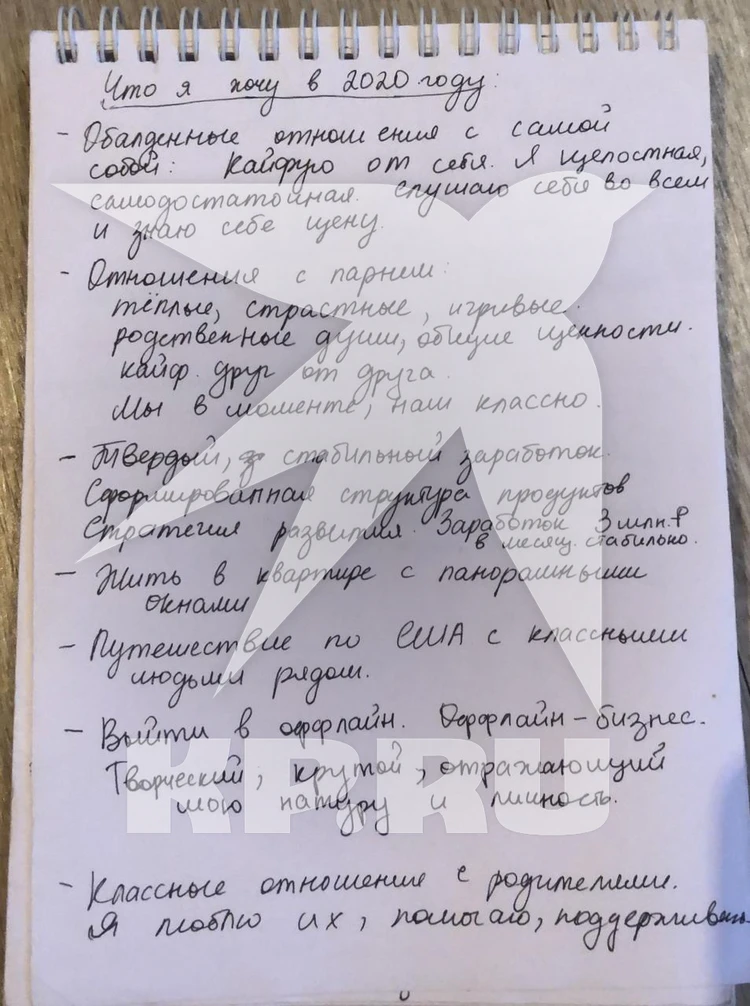 Что я хочу в 2020 году:
- Обалденные отношения с самой
собой: Кайфую от себя. Я целостная,
самодостаточная. Слушаю себя во всем
и знаю себе цену.
- Отношения с парнем:
тёплые, страстные, игривые.
родственные души, общие ценности.
кайф. друг от друга.
Мы в моменте, нам классно.
- Твердый, стабильный заработок.
Сформированная структура продуктов
Стратегия развития. Заработок 3 млн. ₽
в месяц. стабильно.
- Жить в квартире с панорамными
окнами
- Путешествие по США с классными
людьми рядом.
- Выйти в оффлайн. Оффлайн-бизнес.
Творческий, крутой, отражающий
мою натуру и личность.
KP.RU
- Классные отношение с родителями.
Я люблю их, помогаю, поддерживаю